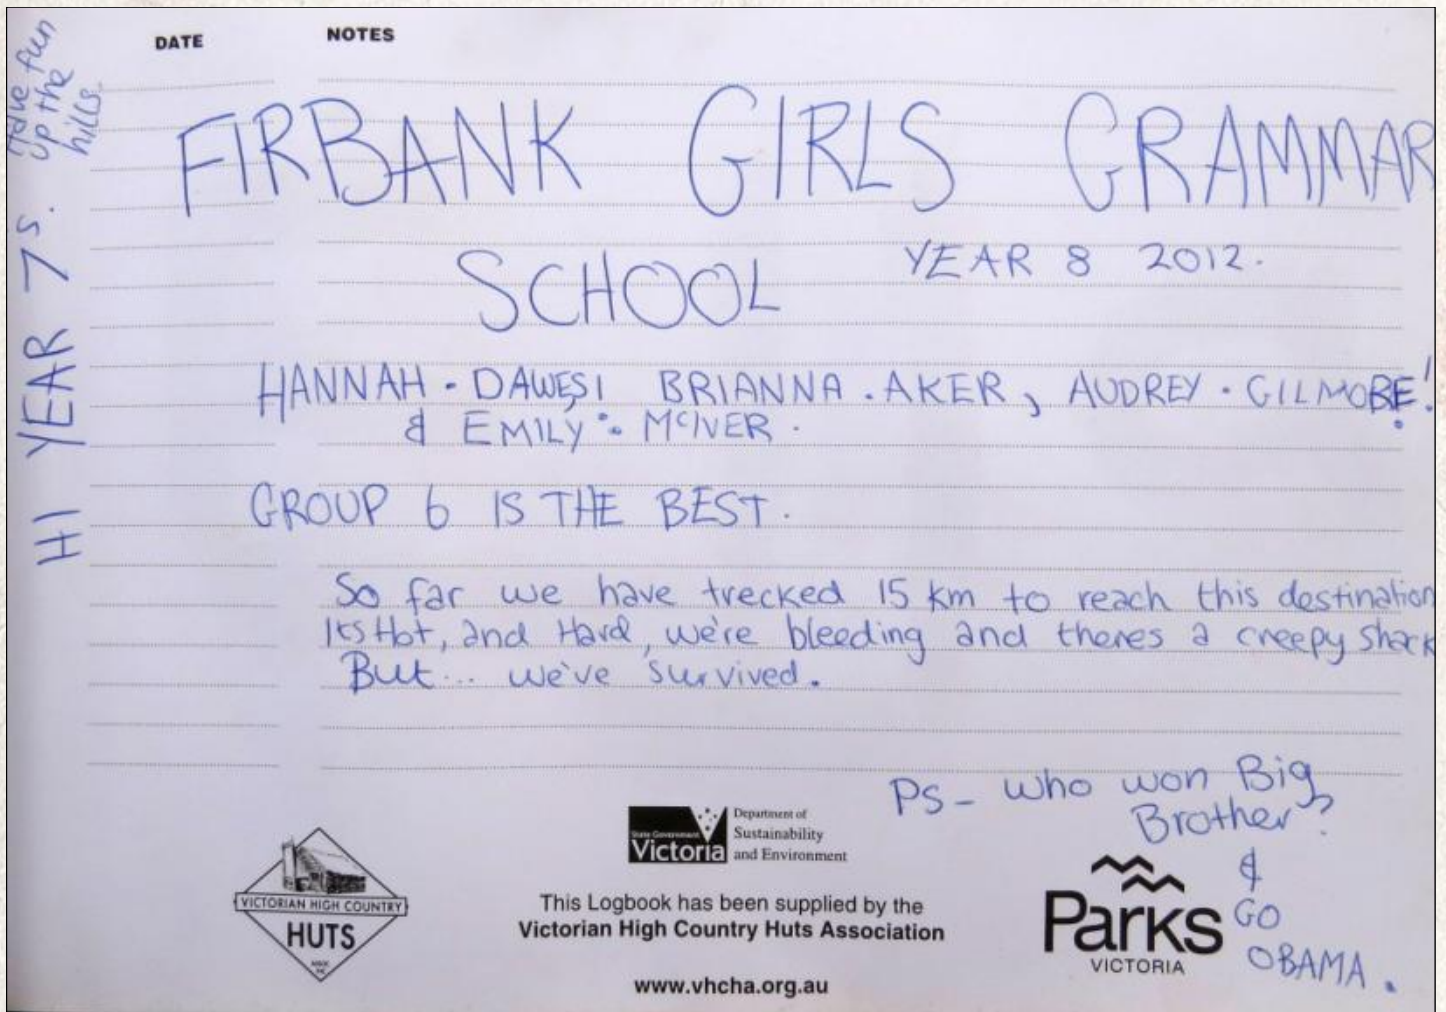 DATE NOTES
FIRBANK GIRLS GRAMMAR
SCHOOL YEAR 8 2012.
HANNAH . DAWES, BRIANNA . AKER, AUDREY . GILMORE!
& EMILY . McIVER .
GROUP 6 IS THE BEST.
So far we have trecked 15 km to reach this destination
Its Hot, and Hard, we're bleeding and theres a creepy shack
But... we've survived.
Ps - who won Big
Brother?
&
GO
OBAMA.
HI YEAR 7s.
Have fun
up the
hills.
VICTORIAN HIGH COUNTRY
HUTS
State Government
Victoria
Department of
Sustainability
and Environment
This Logbook has been supplied by the
Victorian High Country Huts Association
www.vhcha.org.au
Parks
VICTORIA